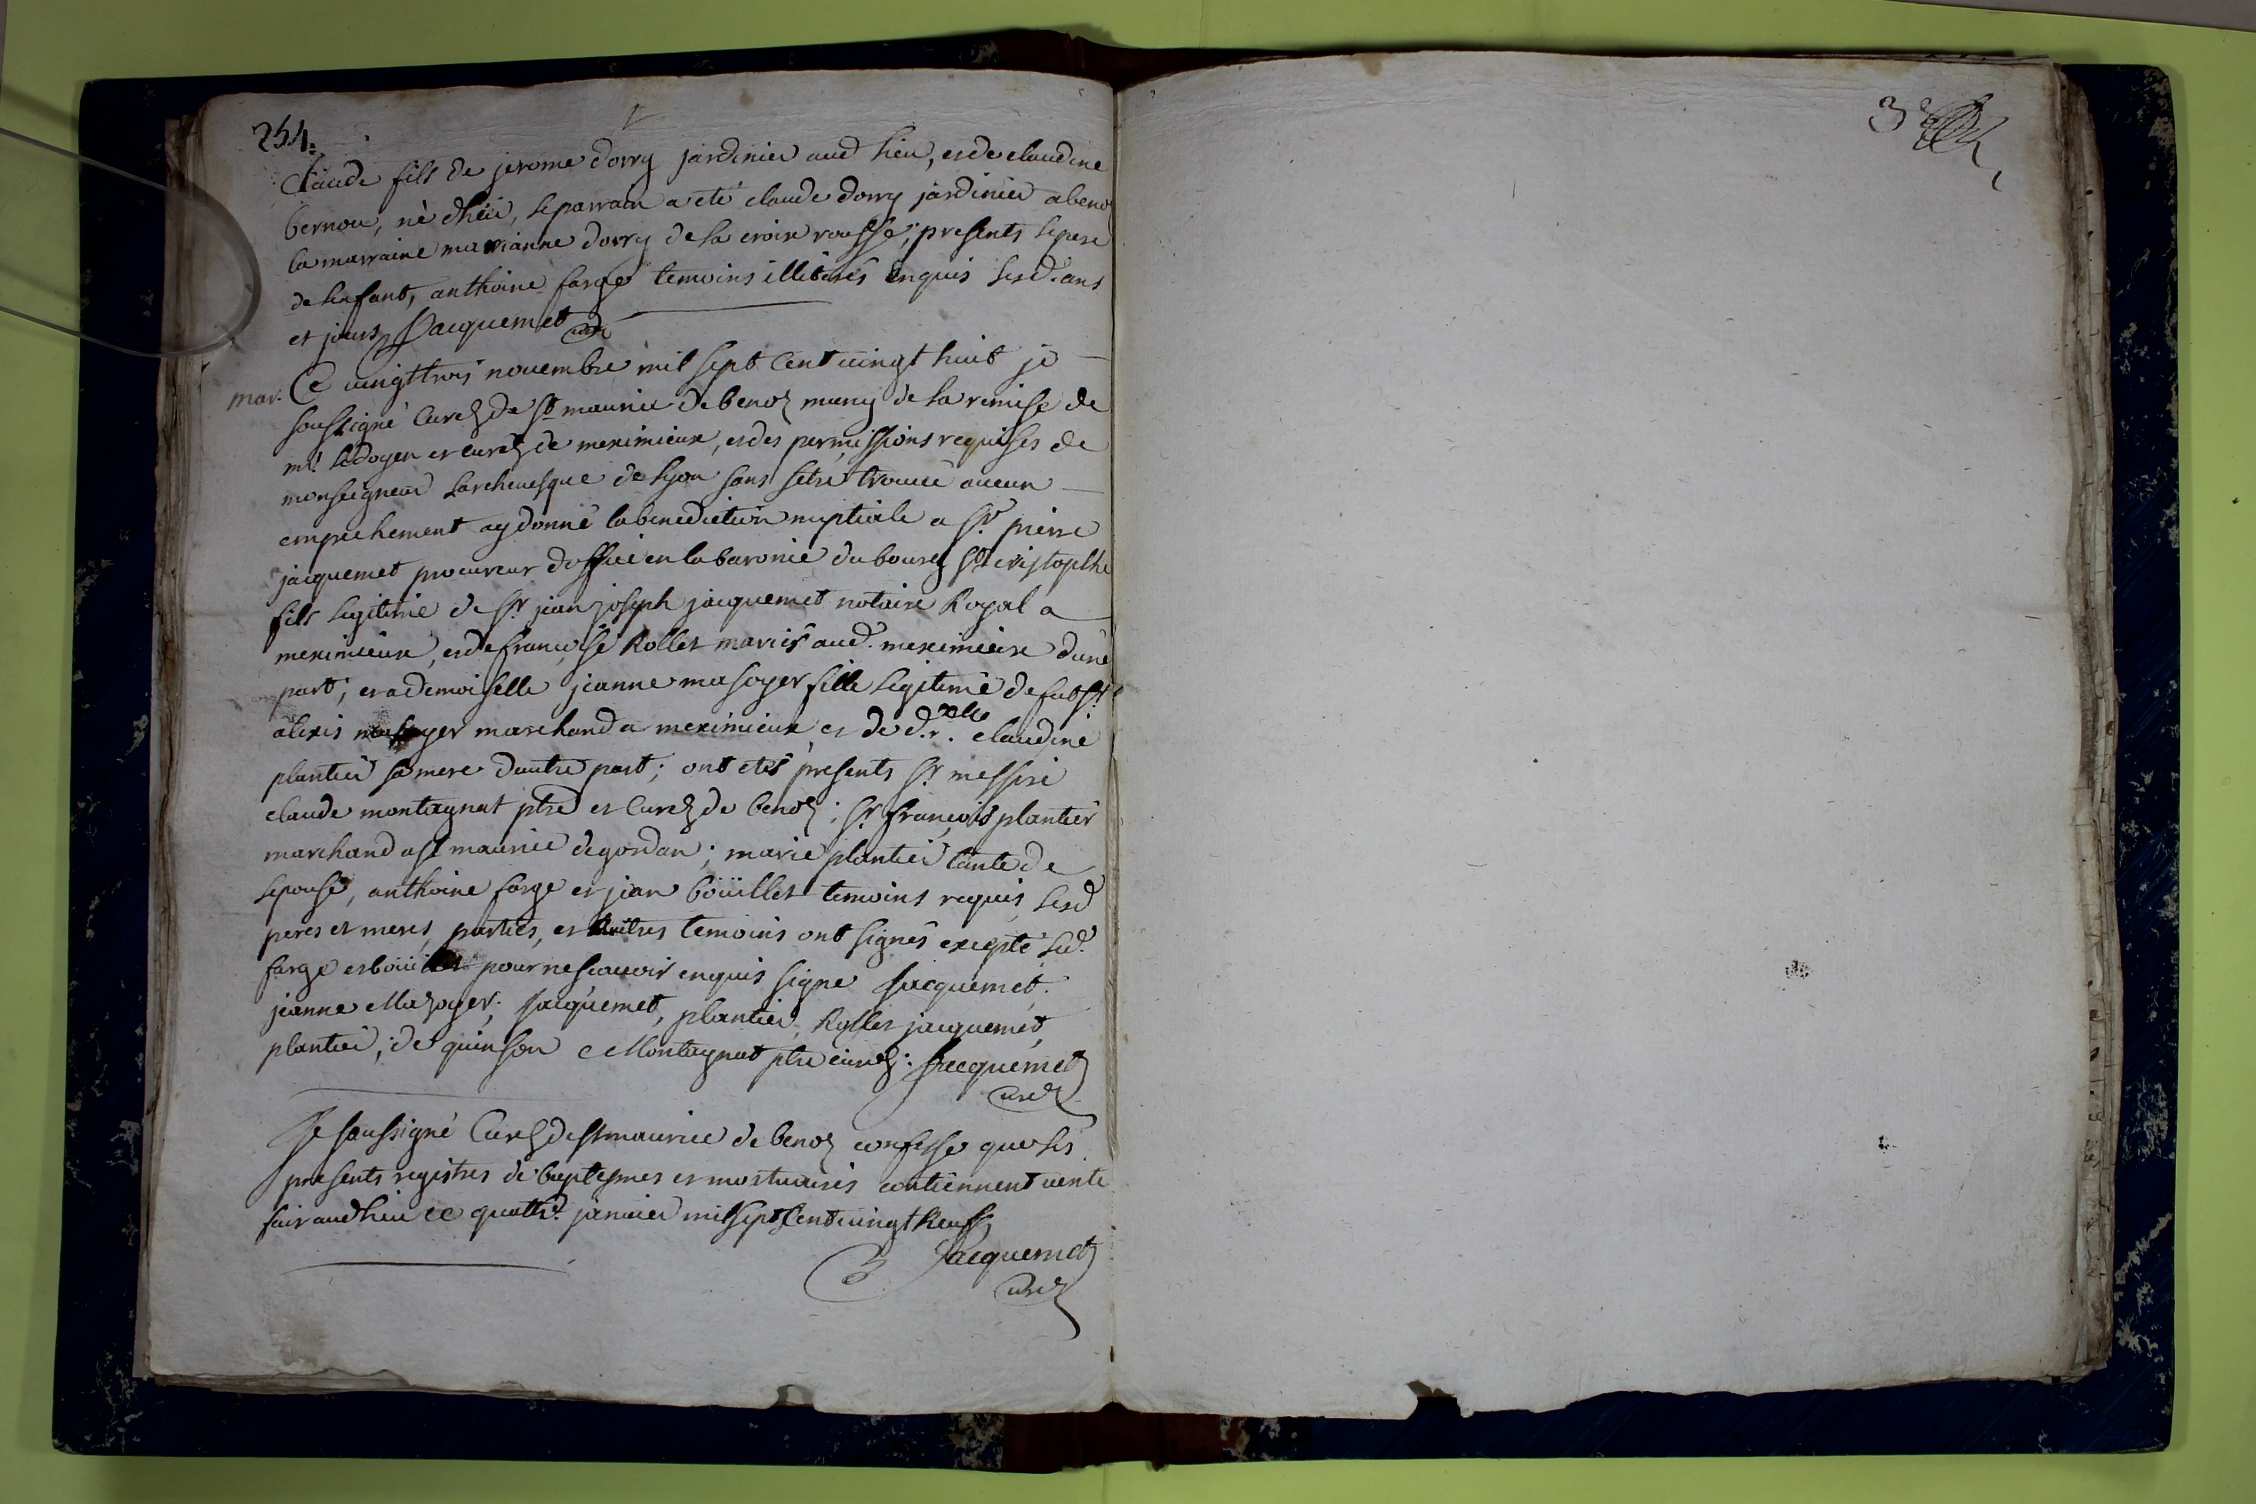 254.
Claude fils de jerome dorry jardinier aud lieu, et de claudine
bernou, né d'hier, le parrain a eté claude dorry jardinier a benoz
la marraine marianne dorry de la croix rousse; presents le pere
de lenfant, anthoine farge temoins illiterés enquis lesd. ans
et jours Jacquemet curé
mar. Ce vingt trois novembre mil sept cent vingt huit je
soussigné Curez de st maurice de benoz muny de la remise de
mr. le doyen et curez de meximieux, et des permissions requises de
monseigneur larchevesque de lyon sans setre trouvé aucun
empechement ay donné la benediction nuptiale a sr. pierre
jacquemet procureur doffice en la baronie du bourg st cristophe
fils legitime de sr. jean joseph jacquemet notaire Royal a
meximieux, et de francoise Rollet mariés aud. meximieux dune
part; et a demoiselle jeanne masoyer fille legitime de fut sr.
alexis masoyer marchand a meximieux et de d.elle claudine
plantier sa mere dautre part; ont etés presents sr. messire
claude montagnat ptre et Curez de benoz; sr. francois plantier
marchand a st maurice de gordan; marie plantier tante de
lepouse, anthoine farge et jean boüillet temoins requis, lesd
peres et meres, parties, et autres temoins ont signés excepté led.
farge et boüillet pour ne scavoir enquis signe Jacquemet.
jeanne Mazoyer; Jacquemet, plantier, Rollet jacquemet,
plantier; de quinson Montagnat ptre curez. Jacquemet
curez
Je soussigné Curez de st maurice de benoz confesse que les
presents registres de baptesmes et mortuaires contiennent verité
fait aud lieu ce quatre. janvier mil sept cent vingt neuf
Jacquemet
curez
3